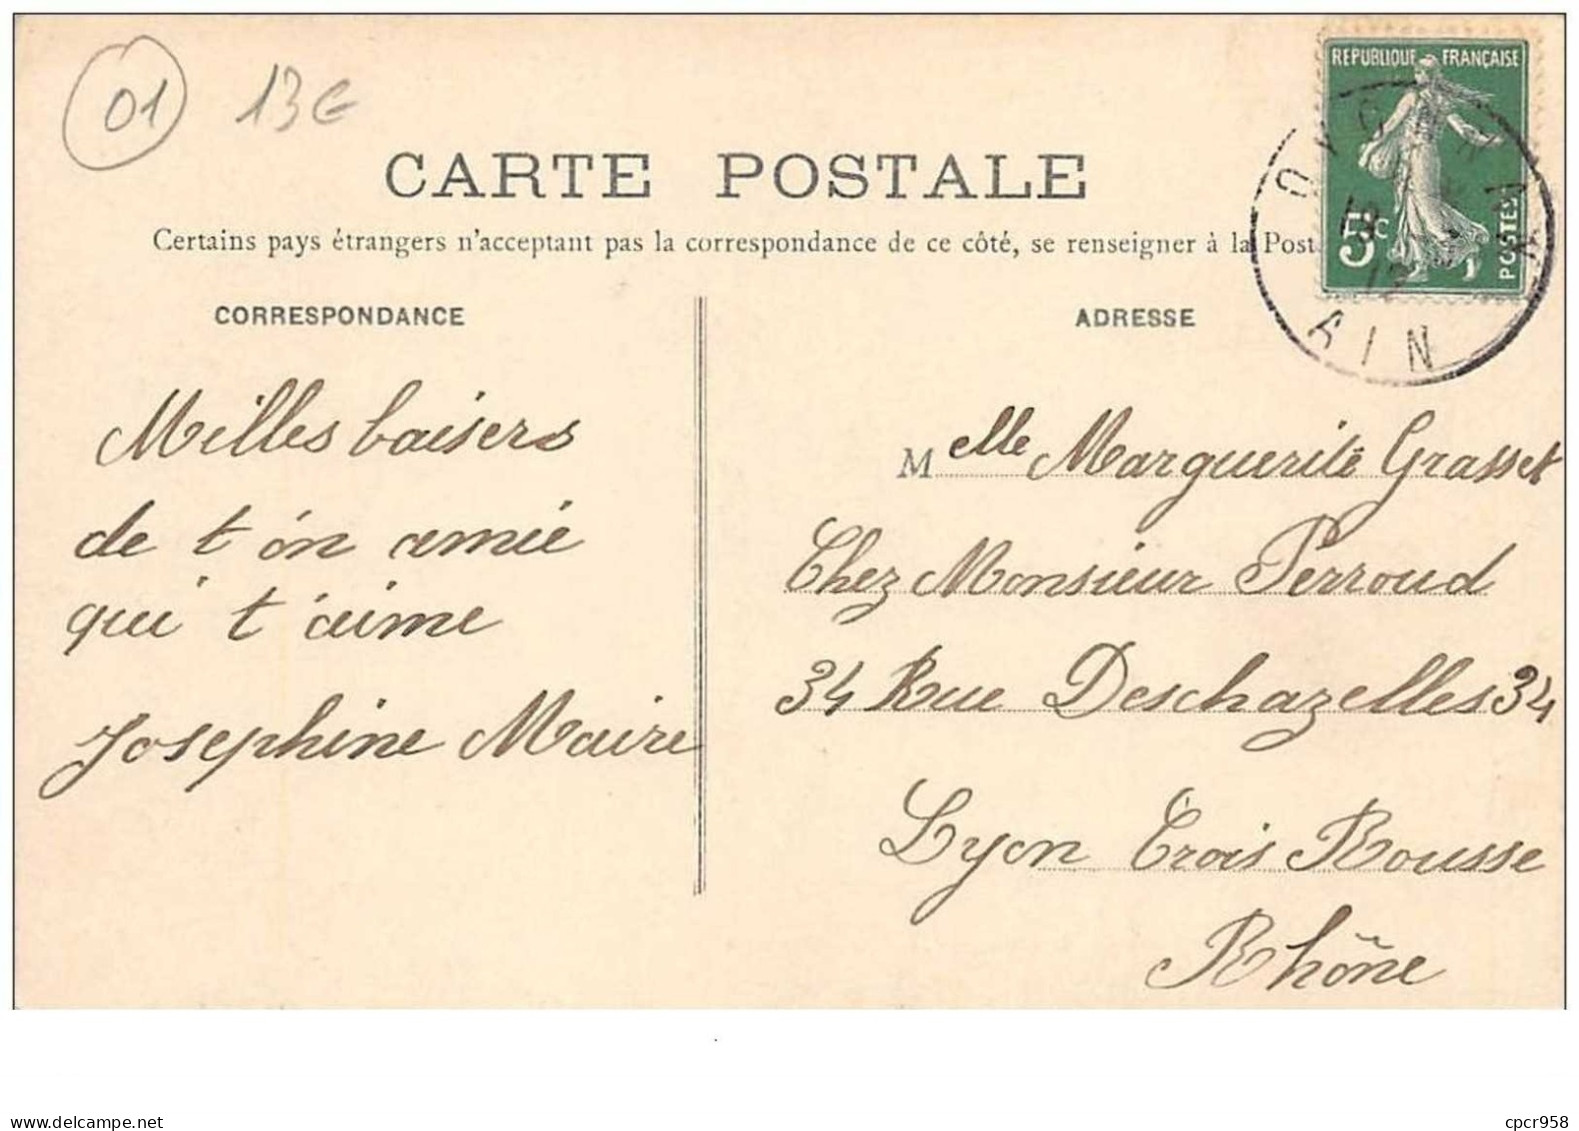 01 13€
CARTE POSTALE
Certains pays étrangers n'acceptant pas la correspondance de ce côté, se renseigner à la Post
CORRESPONDANCE
Milles baisers
de t'on amie
qui t'aime
Josephine Maire
ADRESSE
REPUBLIQUE FRANÇAISE
5c
POSTES
OYONNAX
AIN
Melle Marguerite Grasset
Chez Monsieur Perroud
34 Rue Deschazelles 34
Lyon Croix Rousse
Rhône
www.delcampe.net
cpcr958